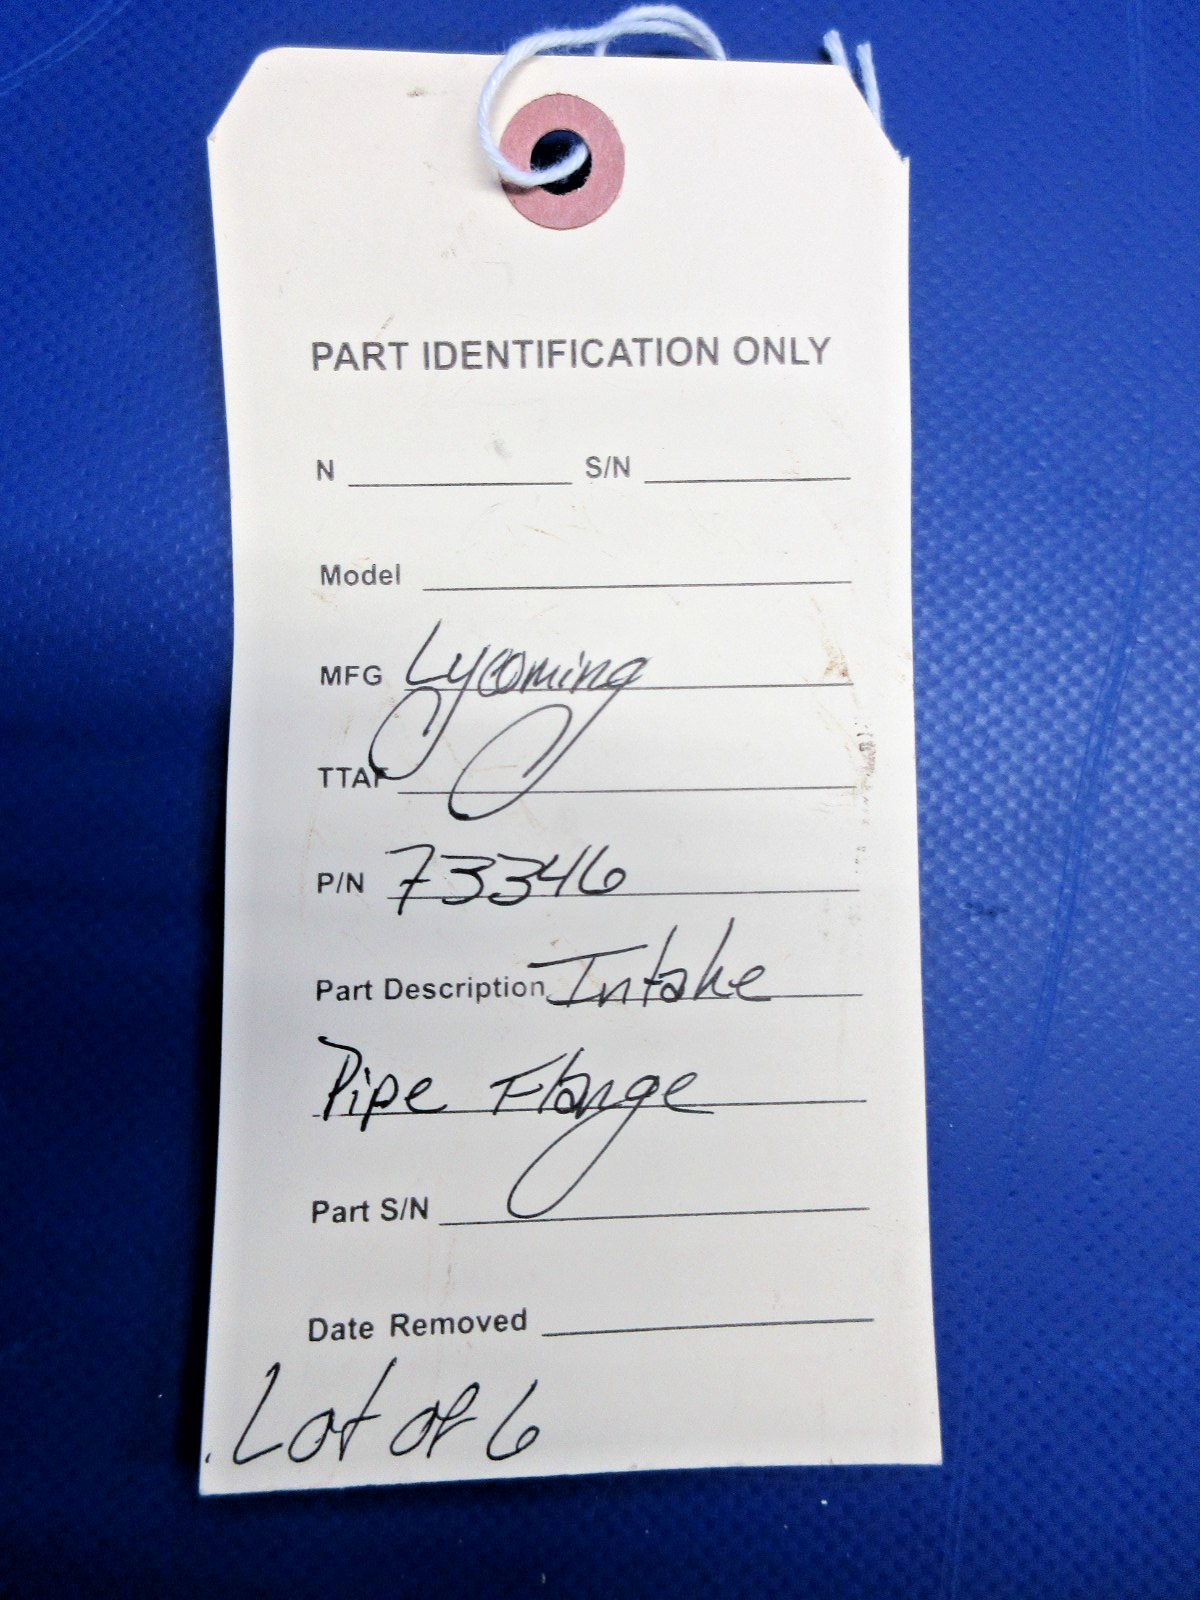 PART IDENTIFICATION ONLY
N S/N
Model
MFG Lycoming
TTAF
P/N 73346
Part Description Intake
Pipe Flange
Part S/N
Date Removed
Lot of 6